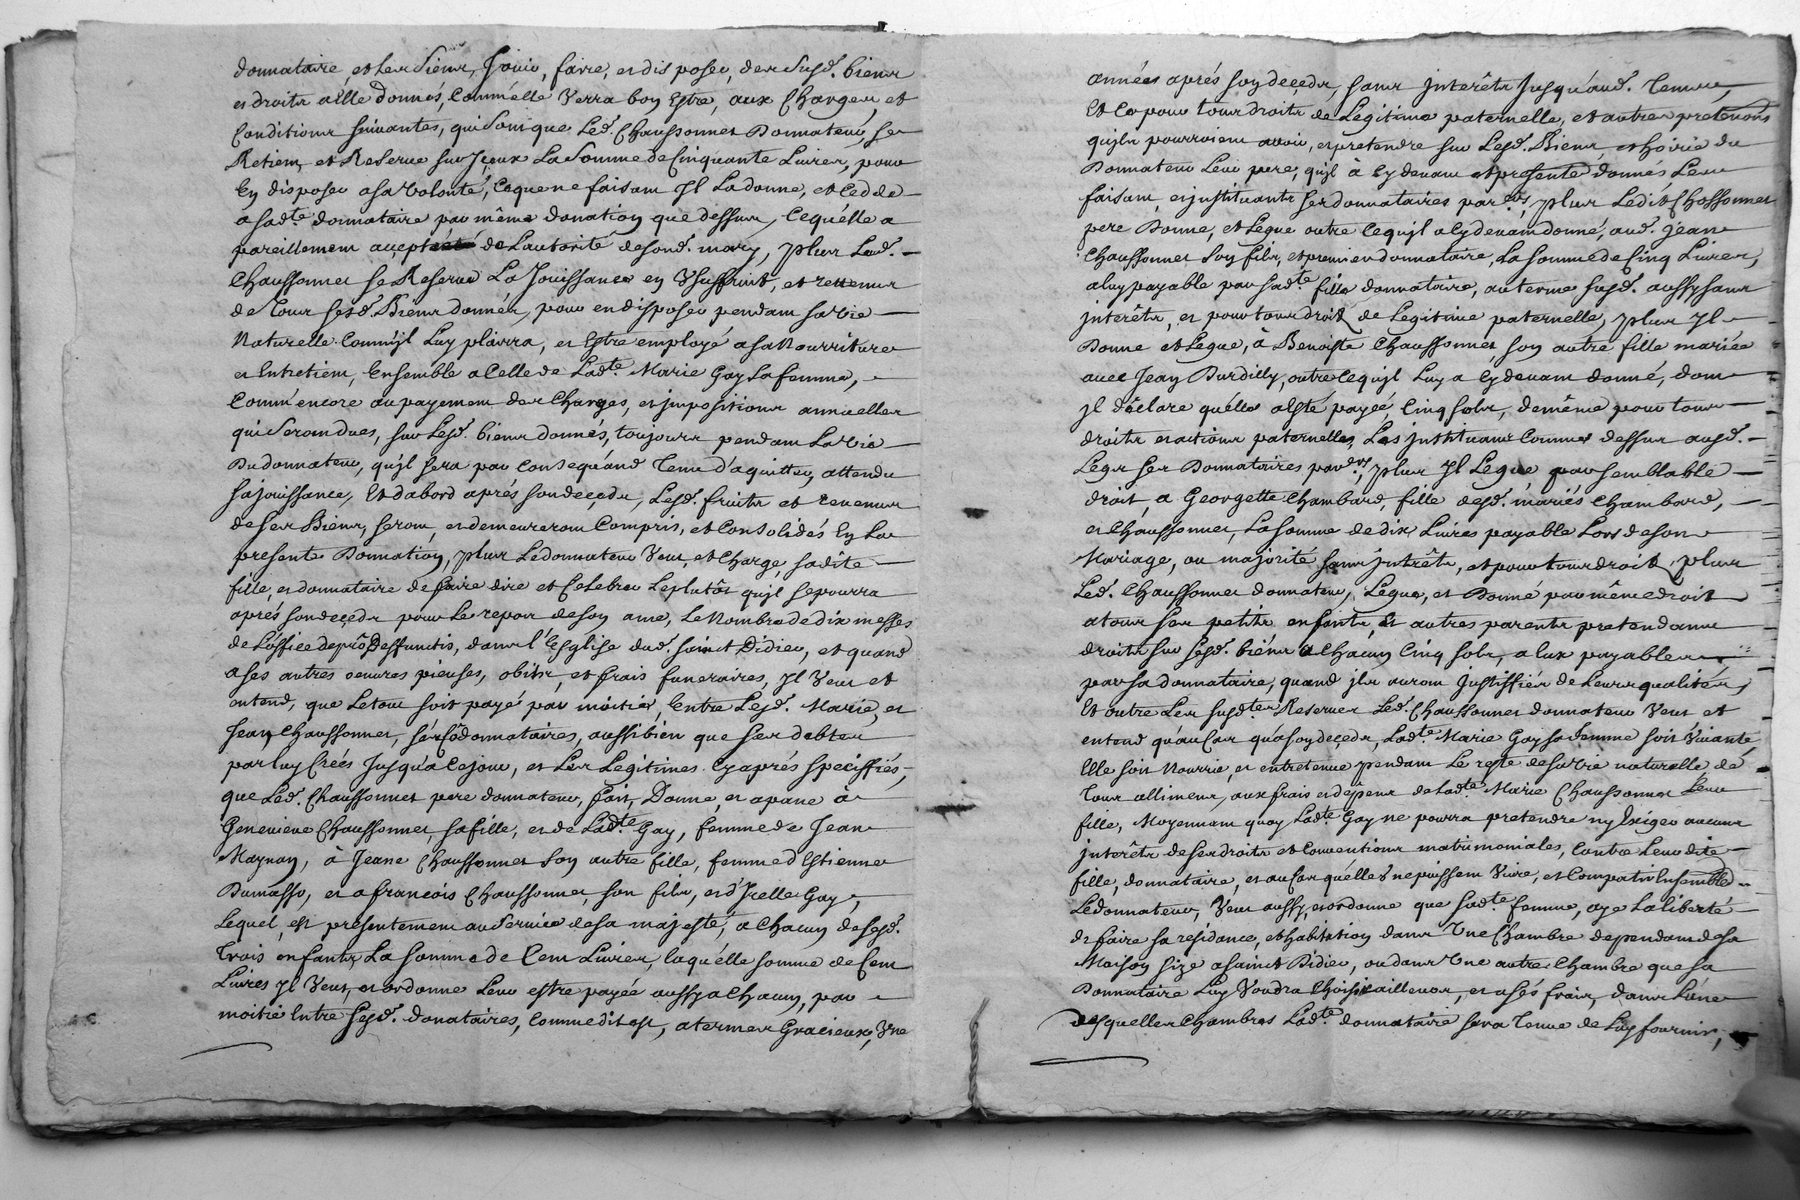 donnataire, et les siens, Jouir, faire, et disposer, des susd. biens
et droits a elle donnés, Comm'elle Verra bon Estre, aux Charges, et
Conditions suivantes, qui sont que Led. Chaussonnet Donnateur, se
Retient, et Reserve sur Jceux La somme de Cinquante Livres, pour
En disposer a sa volonté, Ceque ne faisant Jl La donne, et Cedde
a sadte donnataire par même donation que dessus, Cequ'elle a
pareillement accepté de L'autorité de sond. mary, plus Led.
Chaussonnet se Reserve La Jouissance en Vsuffruit, et revenus
de Tous sesd. Biens donnés, pour en disposer pendant sa vie
Naturelle Comm'jl Luy plaira, et Estre employé a sa Nourriture
et Entretient, Ensemble a Celle de Ladte Marie Gay sa femme,
Comm'encore au payement des Charges, et jmpositions annuelles
qui seront dues, sur Lesd. biens donnés, toujours pendant La vie
Du donnateur, qu'jl sera par Consequànd Tenu d'aquitter, attendu
sa jouissance, Et dabord aprés son deçedz, Lesd. fruits et revenus
de ses Biens, seront, et demeureront Compris, et Consolidés En La
presente Donnation, plus Le donnateur Veut, et Charge, sa dite
fille, et donnataire de faire dire et Celebrer Le plutôt qu'jl se pourra
aprés son deçedz pour Le repos de son ame, Le Nombre de dix messes
de L'office de prô Deffunctis, dans l'Esglise dud. sainct Didier, et quand
a ses autres oeuvres pieuses, obits, et frais funeraires, Jl Veut et
entend, que Le tout soit payé par moitiés, Entre Lesd. Marie, et
Jean Chaussonnet, ses Côdonnataires, aussi bien que ses debtes
par luy Creés Jusqu'a Ce jour, et Les Legitimes Cy aprés specifflés,
que Led. Chaussonnet pere donnateur, fait, Donne, et apane à
Genevieve Chaussonnet, sa fille, et de Ladte Gay, femme de Jean
Maynan, à Jeane Chaussonnet son autre fille, femme d'Estienne
Dumasse, et a françois Chaussonnet, son fils, et d'Jcelle Gay,
Lequel, est présentement au service de sa majesté, a Chacun de sesd.
Trois enfants La somme de Cent Livres, laquélle somme de Cent
Livres Jl Veut, et ordonne Leur estre payée aussy a Chacun, par
moitié Entre sesd. donataires, Comme dit est, a termes Gracieux, Vne
années aprés son deçedz, sans Jnterêts Jusqu'aud. Terme,
Et Ce pour tous droits de Legitime paternelle, et autres pretentions
qu'jls pourroient avoir, et pretendre sur Lesd. Biens, et hoirie du
Donnateur Leur pere, qu'jl à Cy devant et presenté donnés Leur
faisant, et jnstituants ses donnataires par eux, plus Ledit Chossonnet
pere Donne, et Legue outre Cequ'jl a Cy devant donné, aud. Jean
Chaussonnet son fils, et premier donnataire, La somme de Cinq Livres,
a luy payable par sadte fille donnataire, au terme susd. aussy sans
jnterêts, et pour tous droits de Legitime paternelle, plus Jl
Donne et Legue, à Benoiste Chaussonnet, son autre fille mariée
avec Jean Burdilly, outre Cequ'jl Luy a Cy devant donné, dont
jl dèclare qu'élle a Esté payée, Cinq sols, de même pour tous
droits et actions paternelles, Les jnstituant Comme dessus aud.
Legs ses Donnataires par eux, plus Jl Legue par semblable
droit, a Georgette Chambard, fille desd. mariés Chambard,
et Chaussonnet, La somme de dix Livres payable Lors de son
Mariage, ou majorité sans jntrêts, et pour tous droits, plus
Led. Chaussonnet donnateur, Legue, et Donné par même droit
a tous ses petits enfants, et autres parents pretendants
droits sur sesd. biéns a Chacun Cinq sols, a Eux payables
par sa donnataire, quand jls auront Justiffiés de Leurs qualités,
Et outre Les susdtes Reserves Led. Chaussonnet donnateur Veut et
entend qu'au Cas qu'a son deçedz, Ladte Marie Gay sa femme soit Vivante,
Elle soit Nourrie, et entretenue pendant Le reste de sa vie naturelle de
Tous alliments, aux frais et depens de Ladte Marie Chaussonnet Leur
fille, Moyennant quoy Ladte Gay ne pourra pretendre ny Exiger aucuns
jnterêts de ses droits et Conventions matrimoniales, Contre Leur dite
fille, donnataire, et au Cas qu'élles ne puissent Vivre, et Compatir Ensemble
Le donnateur, Veut aussy, et ordonne que sadte femme, aye La liberté
de faire sa residance, et habitation dans Vne Chambre dependant de sa
Maison size a sainct Didier, ou dans Vne autre Chambre que sa
Donnataire Luy Voudra Choisir ailleurs, et a sés frais, dans L'une
desquelles Chambres Ladte donnataire sera Tenue de Luy fournir,